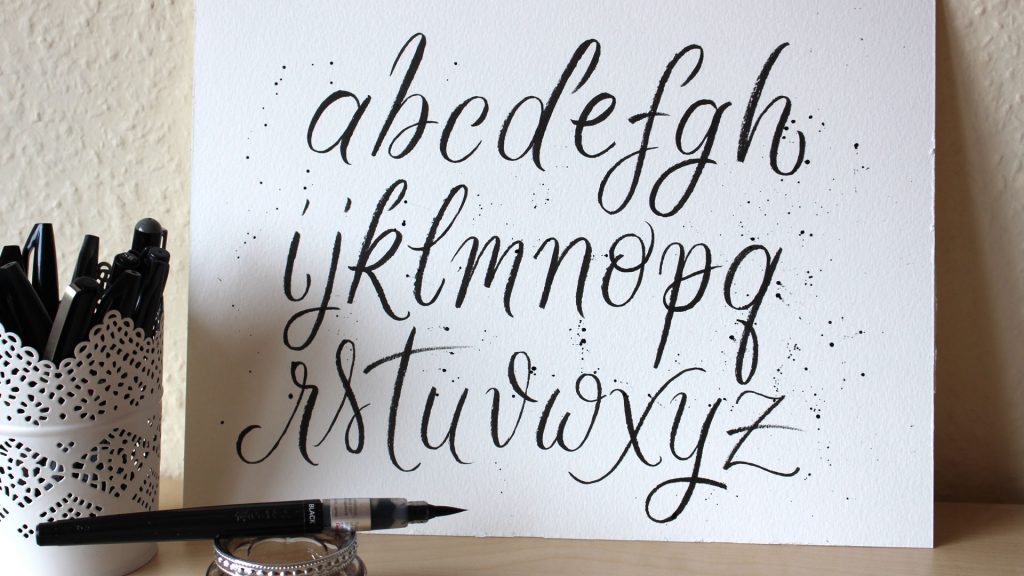 abcdefgh
ijklmnopq
rstuvwxyz
BLACK